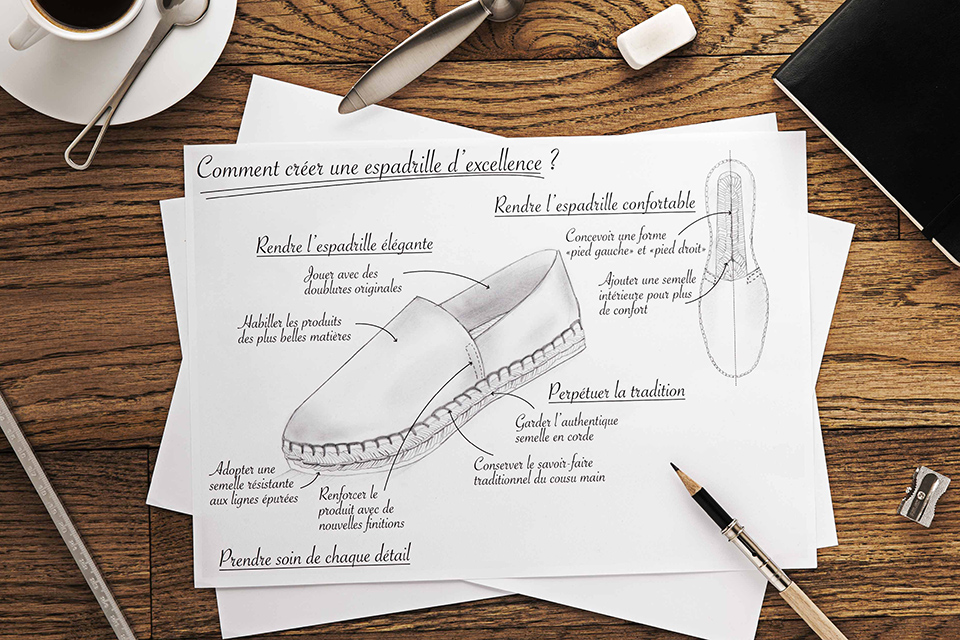 Comment créer une espadrille d'excellence ?
Rendre l'espadrille confortable
Concevoir une forme
«pied gauche» et «pied droit»
Ajouter une semelle
intérieure pour plus
de confort
Rendre l'espadrille élégante
Jouer avec des
doublures originales
Habiller les produits
des plus belles matières
Perpétuer la tradition
Garder l'authentique
semelle en corde
Conserver le savoir-faire
traditionnel du cousu main
Adopter une
semelle résistante
aux lignes épurées
Renforcer le
produit avec de
nouvelles finitions
Prendre soin de chaque détail